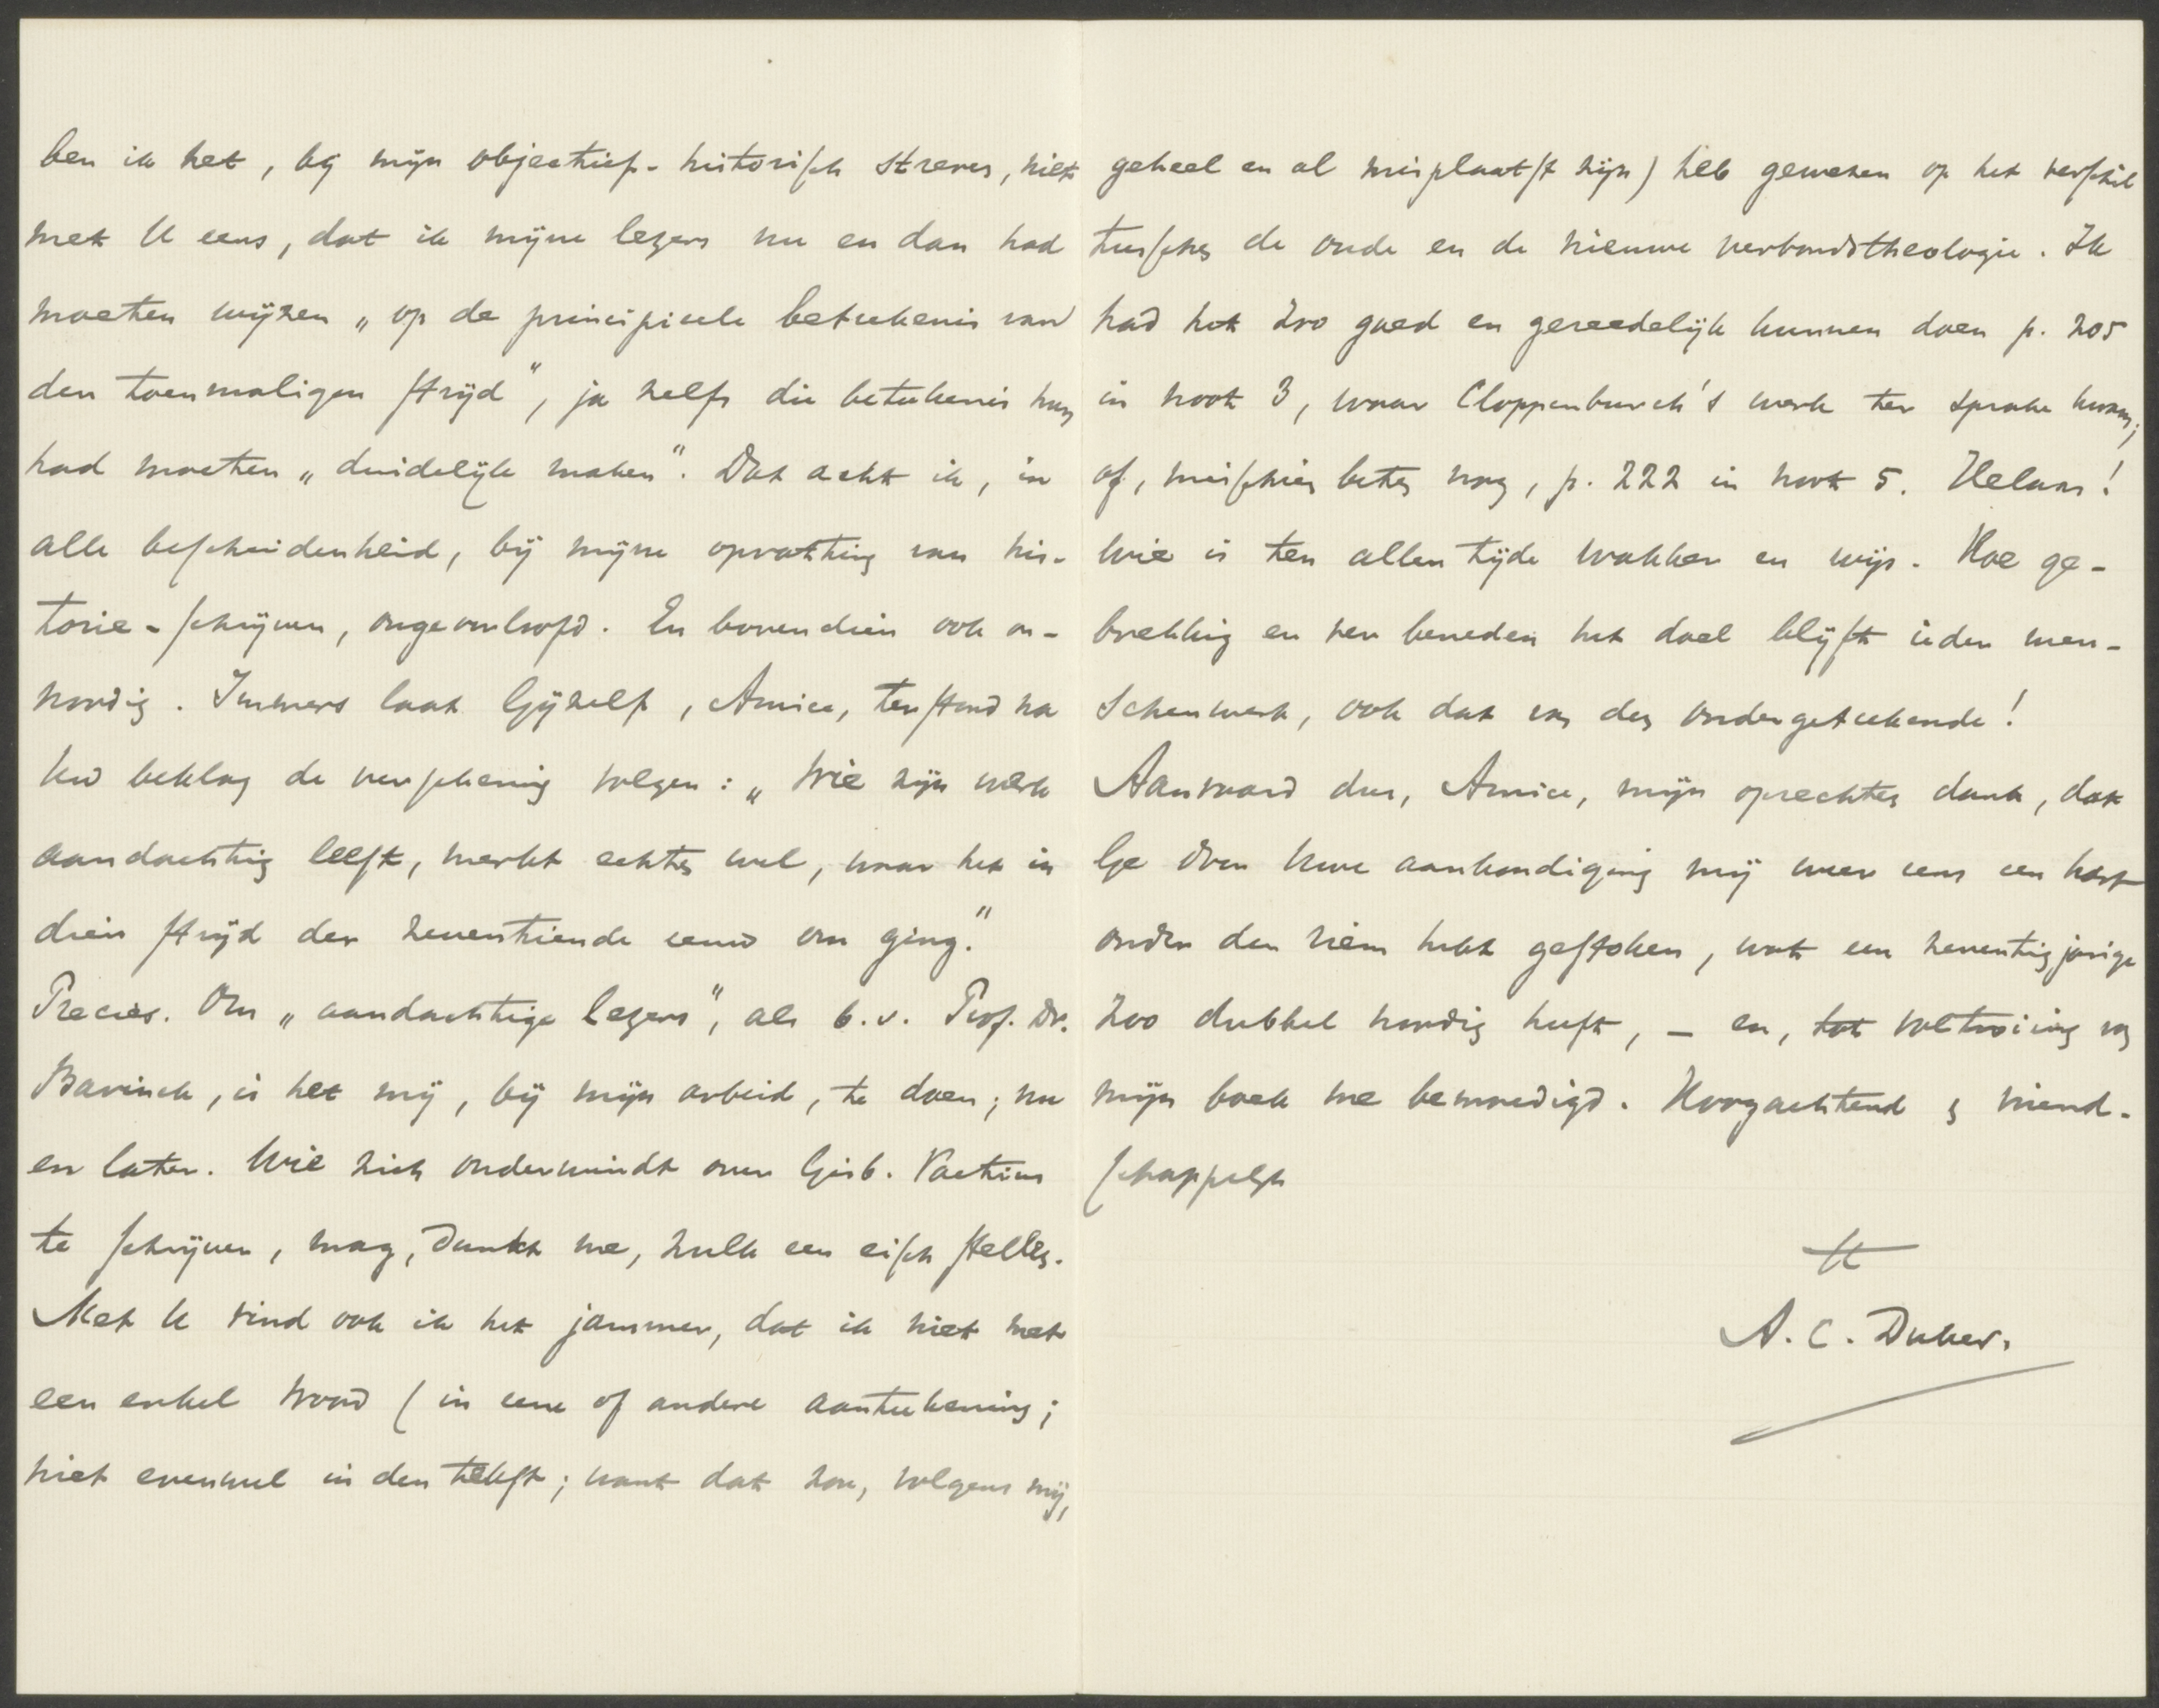 ben ik het, bij mijn objectief-historisch streven, niet
met U eens, dat ik mijne lezers nu en dan had
moeten wijzen „op de principieele beteekenis van
den toenmaligen strijd", ja zelfs die beteekenis hun
had moeten „duidelijk maken". Dat acht ik, in
alle bescheidenheid, bij mijne opvatting van his-
torie-schrijven, ongeoorloofd. En bovendien ook on-
noodig. Immers laat Gijzelf, Amice, terstond na
Uw beklag de verschooning volgen: „Wie zijn werk
aandachtig leest, merkt echter wel, waar het in
dien strijd der zeventiende eeuw om ging."
Precies. Om „aandachtige lezers", als b.v. Prof. Dr.
Bavinck, is het mij, bij mijn arbeid, te doen; nu
en later. Wie zich onderwindt over Gisb. Voetius
te schrijven, mag, dunkt me, zulk een eisch stellen.
Met U vind ook ik het jammer, dat ik niet met
een enkel woord (in eene of andere aanteekening;
niet evenwel in den tekst; want dat zou, volgens mij,
geheel en al misplaatst zijn) heb gewezen op het verschil
tusschen de oude en de nieuwe verbondstheologie. Ik
had het zoo goed en gereedelijk kunnen doen p. 205
in noot 3, waar Cloppenburch's werk ter sprake kwam;
of, misschien beter nog, p. 222 in noot 5. Helaas!
Wie is ten allen tijde wakker en wijs. Hoe ge-
brekkig en ver beneden het doel blijft ieder men-
schenwerk, ook dat van den ondergeteekende!
Aanvaard dus, Amice, mijn oprechten dank, dat
Ge door Uwe aankondiging mij weer eens een hart
onder den riem hebt gestoken, wat een zeventigjarige
zoo dubbel noodig heeft, – en, tot voltooiing van
mijn boek me bemoedigd. Hoogachtend & vriend-
schappelijk
tt
A. C. Duker.